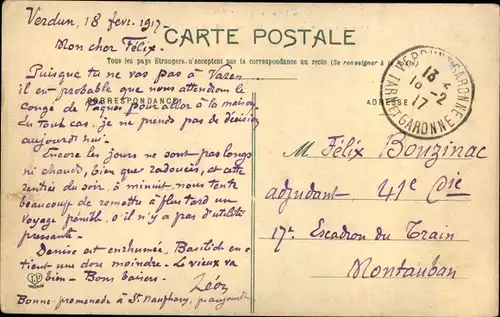 Verdun, 18 févr. 1917.
Mon cher Félix.
CARTE POSTALE
Tous les pays Etrangers n'acceptent pas la correspondance au recto (Se renseigner à la
Puisque tu ne vas pas à
il est probable que nous attendions le
congé de Pâques pour aller à la maison.
CORRESPONDANCE
En tout cas, je ne prends pas de décision
aujourd'hui.
Encore les jours ne sont pas longs
ni chauds, bien que radoucis, et cette
rentrée du soir, à minuit, nous tente
beaucoup de remettre à plus tard un
voyage pénible, s'il n'y a pas d'utilité
pressante.
Denise est enrhumée, Bastide en
tient une dose moindre. Le vieux va
bien - Bons baisers.
Léon
Bonne promenade à St Nauphary,
ADRESSE
GARONNE
13
18 -2
17
TARN-ET-GARONNE
M. Félix Bouzinac
adjudant, 41e Cie
17e Escadron du Train
Montauban